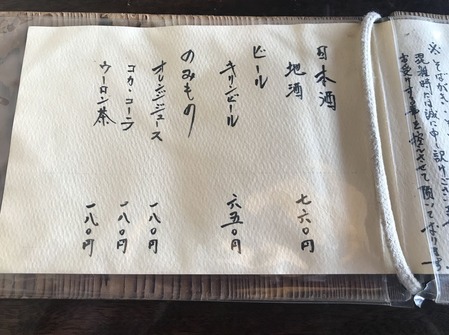 ※そばがき
混雑時には誠に申し訳けござい
お受けする事を控えさせて頂いて居ります。
日本酒
地酒 七六〇円
ビール
キリンビール 六五〇円
のみもの
オレンジジュース 一八〇円
コカ・コーラ 一八〇円
ウーロン茶 一八〇円